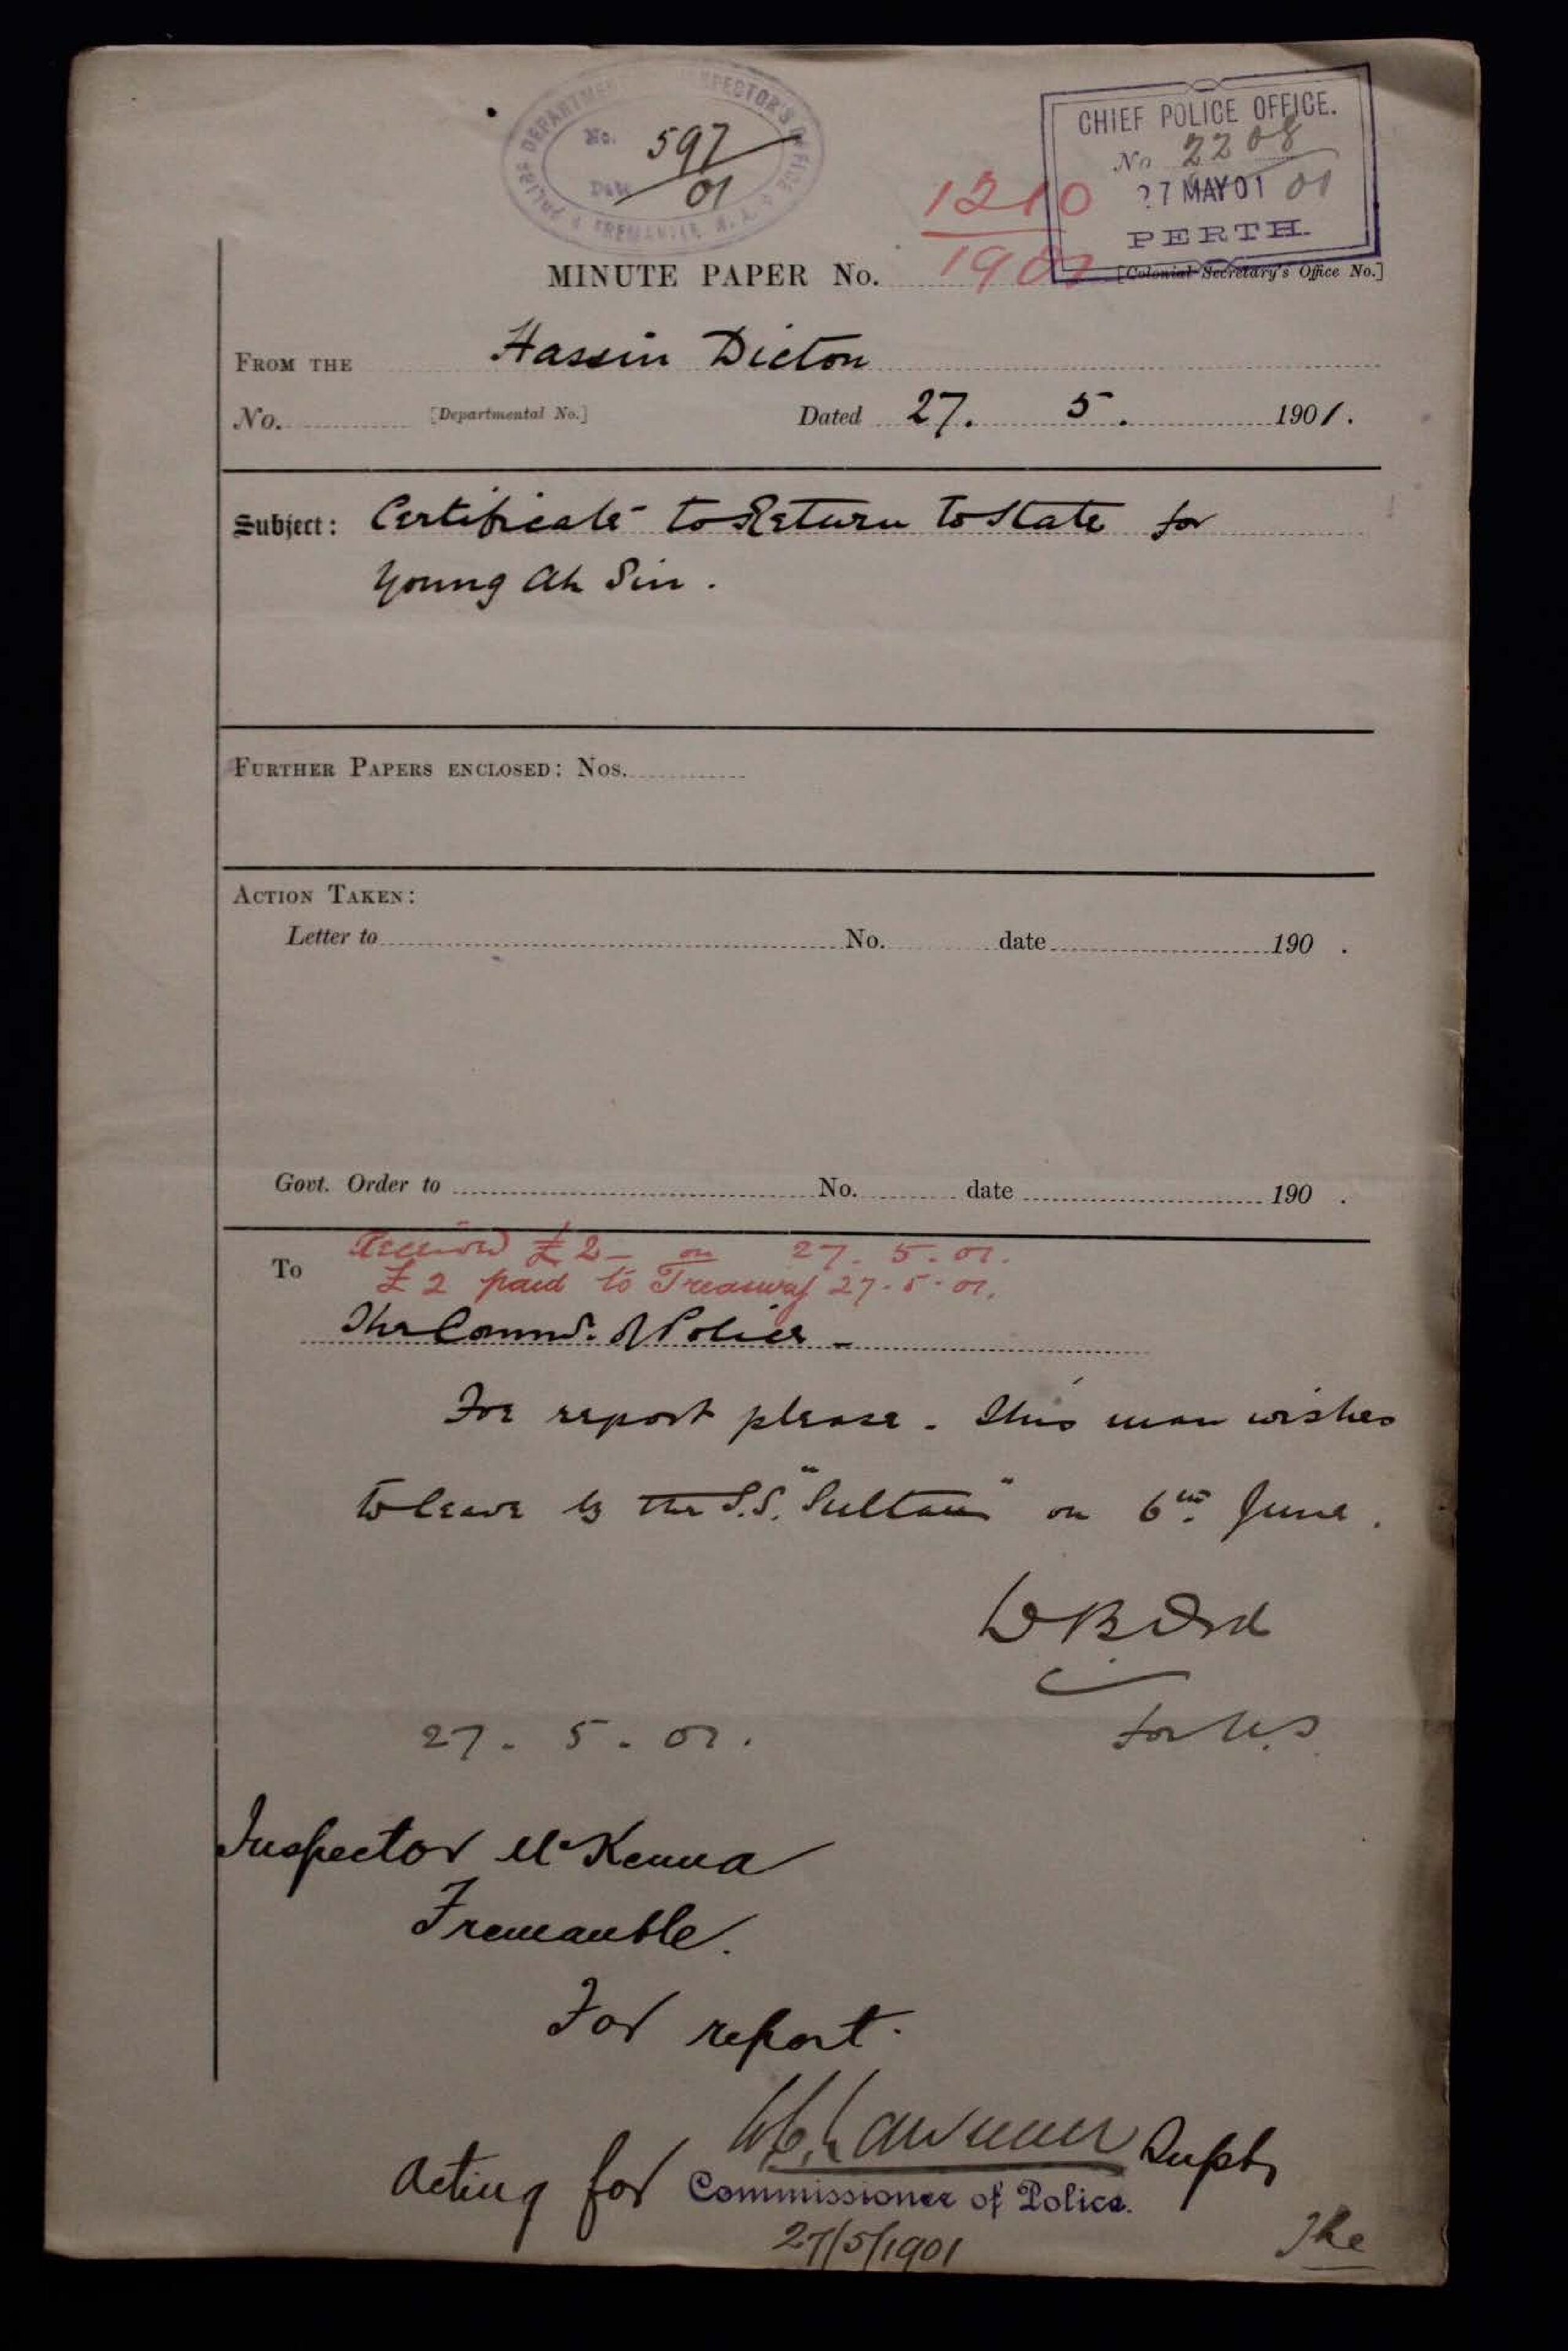 POLICE DEPARTMENT INSPECTOR'S OFFICE
FREMANTLE W.A.
No. 597
Date 01
CHIEF POLICE OFFICE.
No 2208
27 MAY 01 01
PERTH.
1210
1901
MINUTE PAPER No. [Colonial Secretary's Office No.]
FROM THE Hassin Dicton
No. [Departmental No.] Dated 27. 5. 1901.
Subject: Certificate to Return to State for
Young Ah Sin.
FURTHER PAPERS ENCLOSED: Nos.
ACTION TAKEN:
Letter to No. date 190 .
Govt. Order to No. date 190 .
Received £2 – on 27. 5. 01.
To £2 paid to Treasury 27. 5. 01.
The Commr. of Police –
For report please. This man wishes
to leave by the S.S. "Sultan" on 6th June.
for U.S
27. 5. 01.
Inspector McKenna
Fremantle.
For report.
Lawrence Supt
Acting for Commissioner of Police.
27/5/1901
The